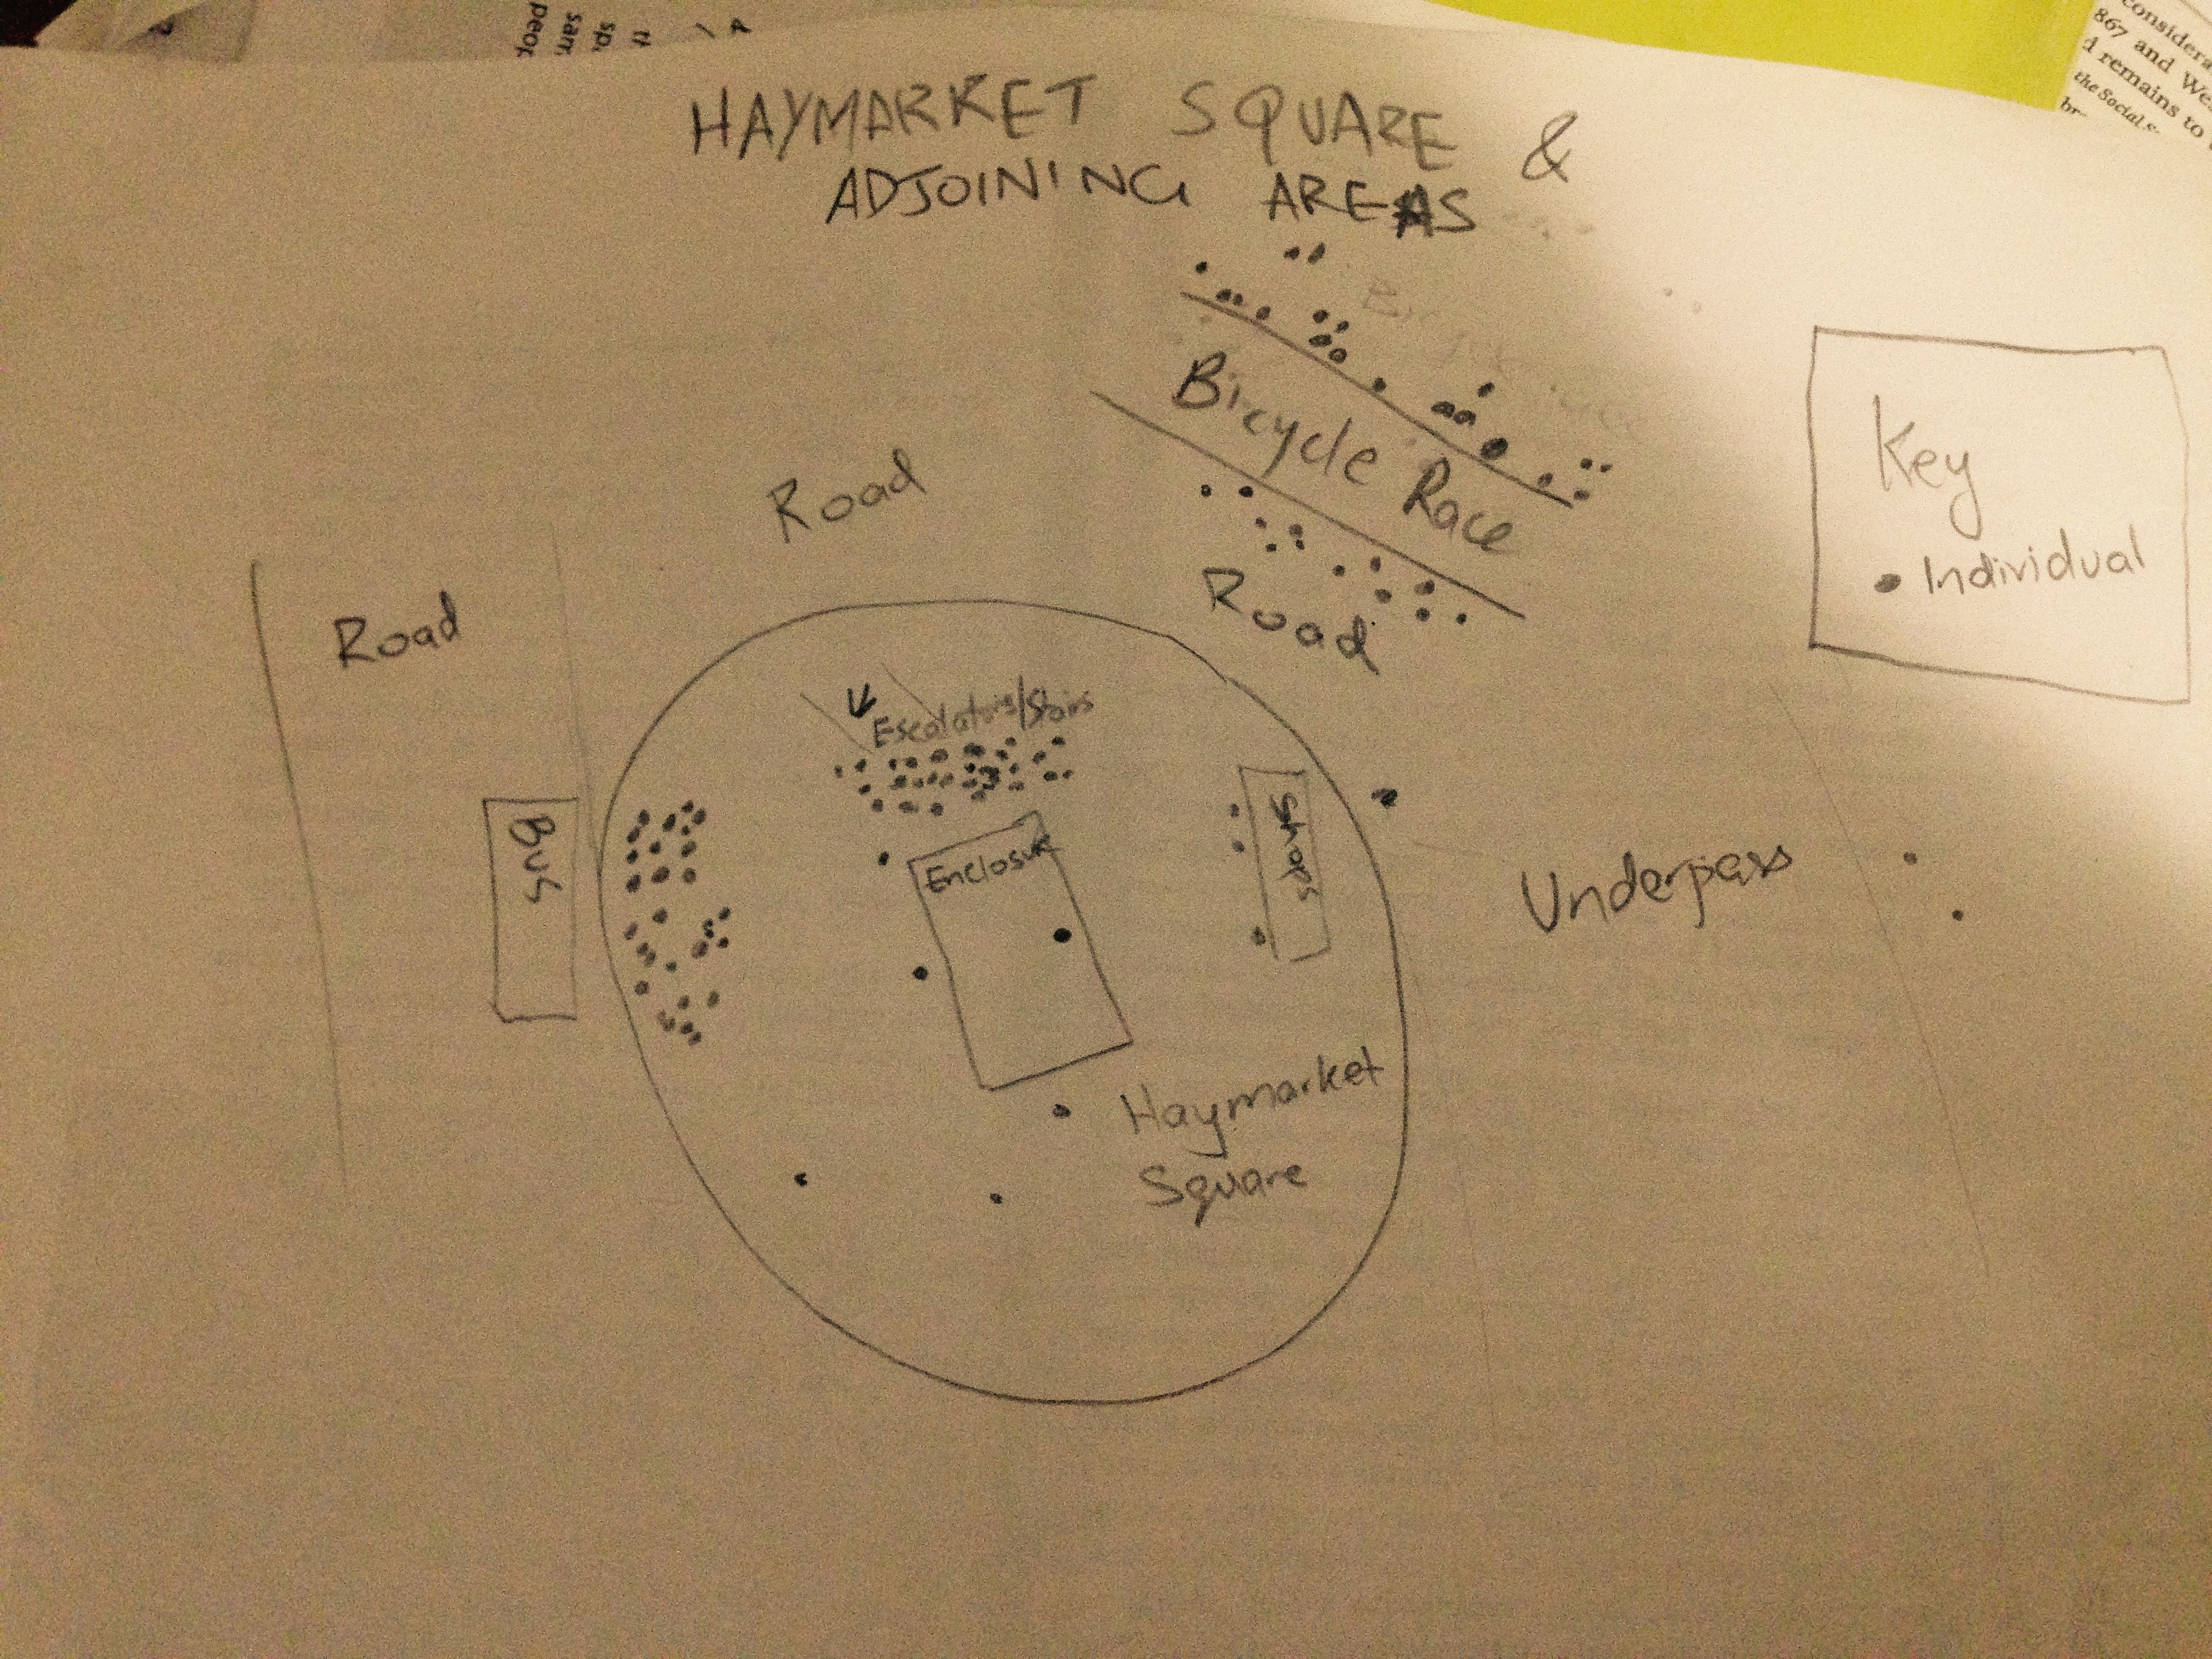 peop
sam
sp
tt
considera
867 and We
d remains to
the Social S
br
HAYMARKET SQUARE &
ADJOINING AREAS
Bicycle Race
Road
Road
Road
Key
• Individual
Escalators/Stairs
Bus
Enclosure
Shops
Underpass
Haymarket
Square